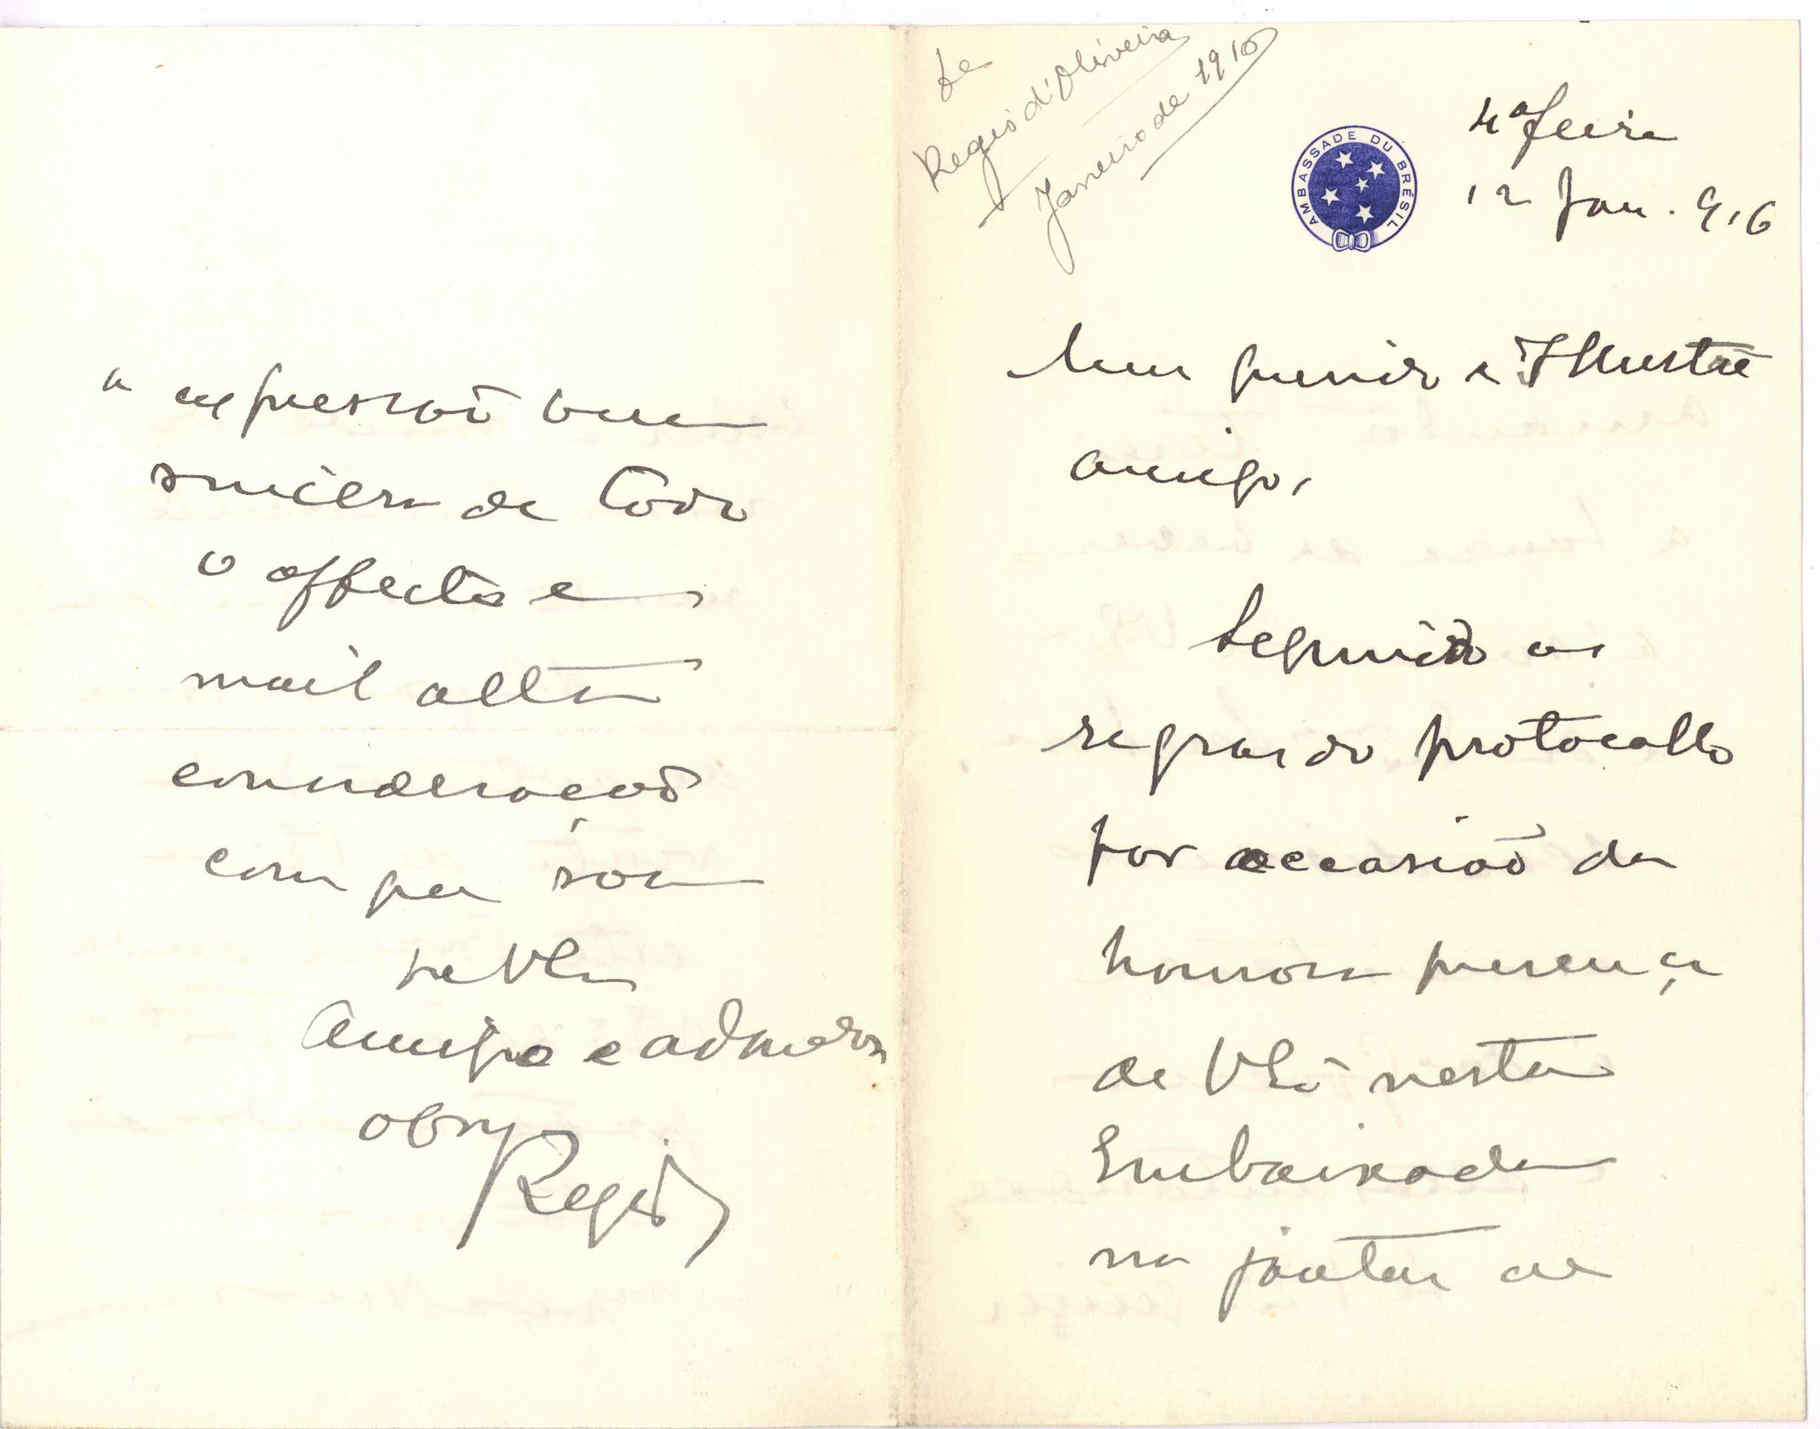 de
Regis d'Oliveira
Janeiro de 1916
AMBASSADE DU BRÉSIL
4ª feira
12 Jan. 916
Meu querido e Illustre
amigo,
Seguindo as
regras do protocollo
por occasião da
honrosa presença
de VExª nesta
Embaixada
no jantar de
a expressão bem
sincera de todo
o affecto e
mais alta
consideração
com que sou
de VExª
Amigo e admirador
obrgº
Regis